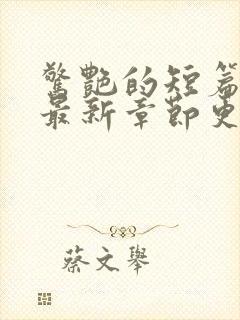 驚艷的短篇
最新章節史
蔡文舉